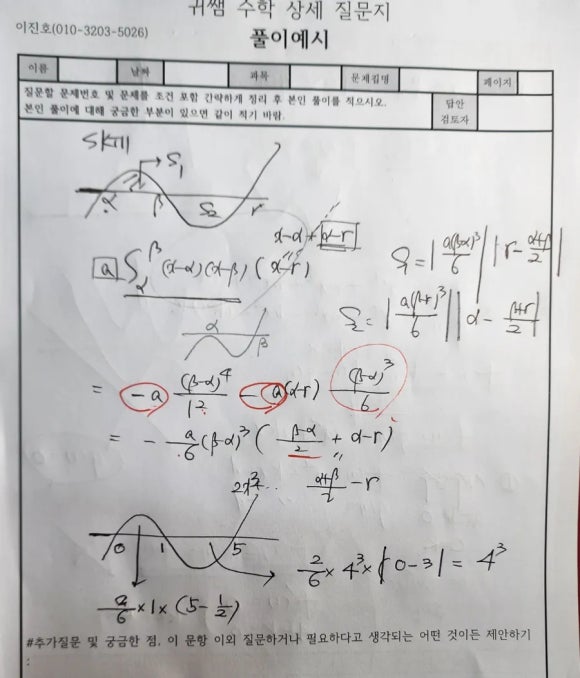 귀쌤 수학 상세 질문지
이진호(010-3203-5026)
풀이예시
이름 날짜 과목 문제집명 페이지
질문할 문제번호 및 문제를 조건 포함 간략하게 정리 후 본인 풀이를 적으시오.
본인 풀이에 대해 궁금한 부분이 있으면 같이 적기 바람.
답안
검토자
SKill
S₁
α β S₂ r
x-α+α-r
a ∫_α^β (x-α)(x-β)(x-r)
S₁ = |a(β-α)³/6| |r - (α+β)/2|
S₂ = |a(β-r)³/6| |α - (β+r)/2|
α β
= -a (β-α)⁴/12 - a(α-r) (β-α)³/6
= - a/6 (β-α)³ ( (β-α)/2 + α-r )
2x³.. (α+β)/2 - r
0 1 5
2/6 × 4³ × |0-3| = 4³
2/6 × 1 × (5 - 1/2)
#추가질문 및 궁금한 점, 이 문항 이외 질문하거나 필요하다고 생각되는 어떤 것이든 제안하기
: